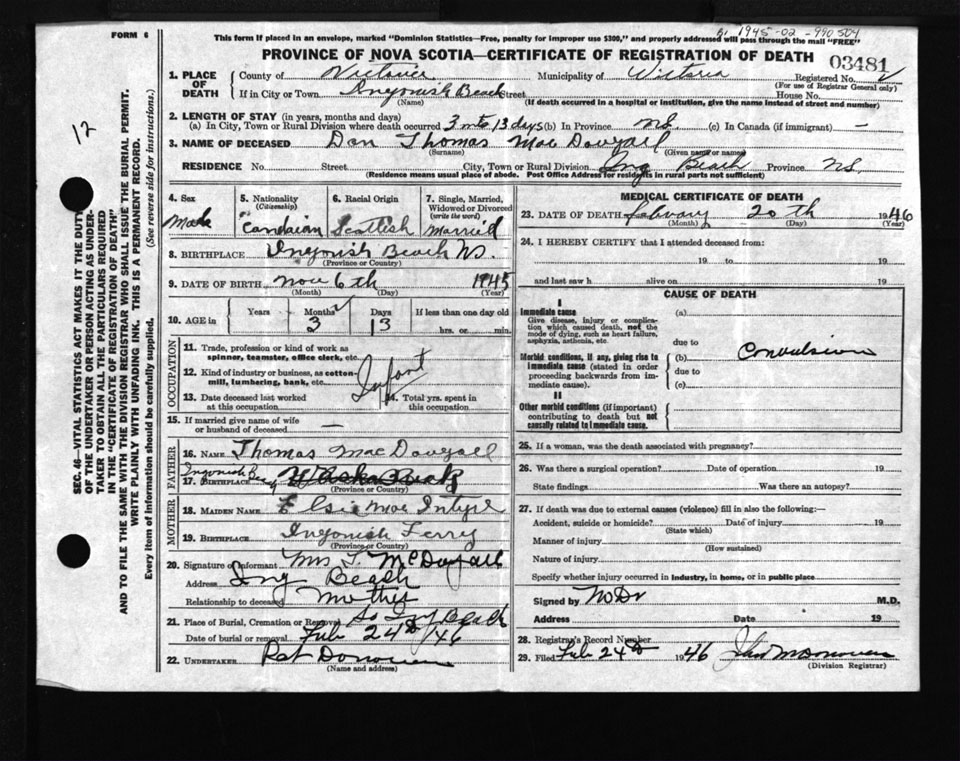 FORM 6
This form if placed in an envelope, marked "Dominion Statistics—Free, penalty for improper use $300," and properly addressed will pass through the mail "FREE"
B. 1945-02-990504
PROVINCE OF NOVA SCOTIA—CERTIFICATE OF REGISTRATION OF DEATH
03481
1. PLACE OF DEATH
County of Victoria Municipality of Victoria Registered No.
(For use of Registrar General only)
If in City or Town Ingonish Beach Street House No.
(Name) (If death occurred in a hospital or institution, give the name instead of street and number)
2. LENGTH OF STAY (in years, months and days)
(a) In City, Town or Rural Division where death occurred 3 mts 13 days (b) In Province NS. (c) In Canada (if immigrant) —
3. NAME OF DECEASED Dan Thomas Mac Dougall
(Surname) (Given name or names)
RESIDENCE No. Street City, Town or Rural Division Ing Beach Province NS.
(Residence means usual place of abode. Post Office Address for residents in rural parts not sufficient)
4. Sex Male
5. Nationality (Citizenship) Candaian
6. Racial Origin Scottish
7. Single, Married, Widowed or Divorced (write the word) Married
8. BIRTHPLACE Ingonish Beach NS.
(Province or Country)
9. DATE OF BIRTH Nov 6th 1945
(Month) (Day) (Year)
10. AGE in Years Months 3 Days 13 If less than one day old
hrs. or min.
OCCUPATION
11. Trade, profession or kind of work as spinner, teamster, office clerk, etc.
12. Kind of industry or business, as cotton-mill, lumbering, bank, etc. Infant
13. Date deceased last worked at this occupation
14. Total yrs. spent in this occupation
15. If married give name of wife or husband of deceased —
FATHER
16. NAME Thomas MacDougall
17. BIRTHPLACE Ingonish
(Province or Country)
MOTHER
18. MAIDEN NAME Elsie Mac Intyre
19. BIRTHPLACE Ingonish Ferry
(Province or Country)
20. Signature of Informant Mrs T. McDougall
Address Ing Beach
Relationship to deceased Mother
21. Place of Burial, Cremation or Removal So Ing Beach
Date of burial or removal Feb 24th/46
22. UNDERTAKER Pat Donovan
(Name and address)
MEDICAL CERTIFICATE OF DEATH
23. DATE OF DEATH Febuary 20th 1946
(Month) (Day) (Year)
24. I HEREBY CERTIFY that I attended deceased from:
19 to 19
and last saw h alive on 19
CAUSE OF DEATH
I
Immediate cause (a)
Give disease, injury or complication which caused death, not the mode of dying, such as heart failure, asphyxia, asthenia, etc.
due to
Morbid conditions, if any, giving rise to immediate cause (stated in order proceeding backwards from immediate cause).
(b) Convulsion
due to
(c)
II
Other morbid conditions (if important) contributing to death but not causally related to immediate cause.
25. If a woman, was the death associated with pregnancy?
26. Was there a surgical operation? Date of operation 19
State findings Was there an autopsy?
27. If death was due to external causes (violence) fill in also the following:—
Accident, suicide or homicide? Date of injury 19
(State which)
Manner of injury
(How sustained)
Nature of injury
Specify whether injury occurred in industry, in home, or in public place
Signed by No Dr M.D.
Address Date 19
28. Registrar's Record Number
29. Filed Feb 24th 1946
(Division Registrar)
12
SEC. 46—VITAL STATISTICS ACT MAKES IT THE DUTY
OF THE UNDERTAKER OR PERSON ACTING AS UNDER-
TAKER TO OBTAIN ALL THE PARTICULARS REQUIRED
IN THE "CERTIFICATE OF REGISTRATION OF DEATH"
AND TO FILE THE SAME WITH THE DIVISION REGISTRAR WHO SHALL ISSUE THE BURIAL PERMIT.
WRITE PLAINLY WITH UNFADING INK. THIS IS A PERMANENT RECORD.
Every item of information should be carefully supplied. (See reverse side for instructions.)